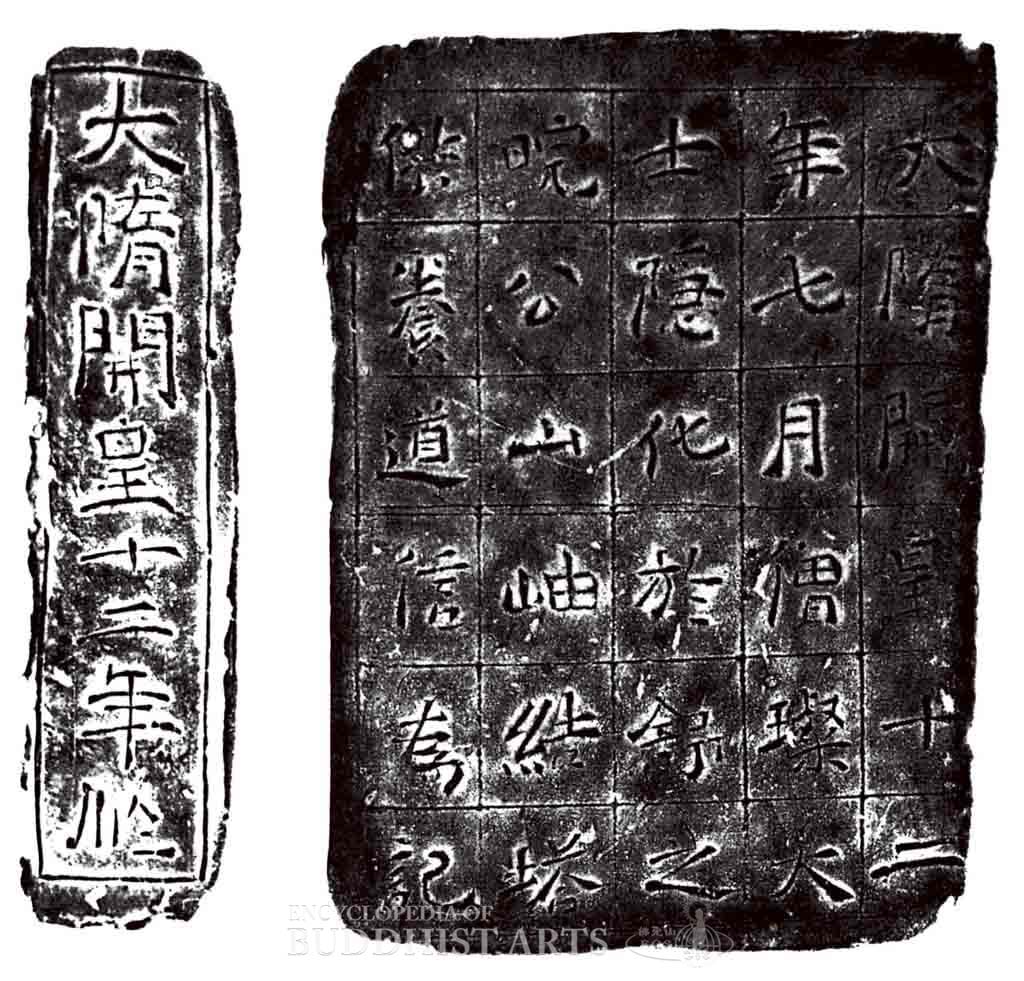 大隋開皇十二
年七月僧璨大
士隱化於舒之
晥公山岫結塔
供養道信為記
大隋開皇十二年作
ENCYCLOPEDIA OF
BUDDHIST ARTS